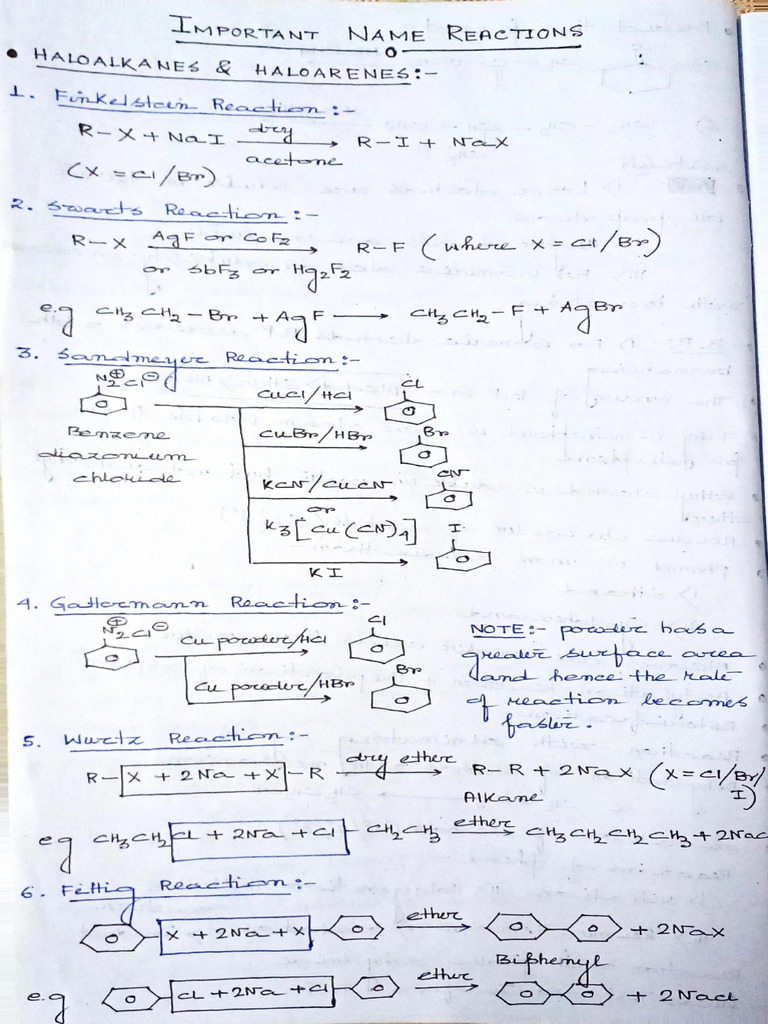 IMPORTANT NAME REACTIONS
• HALOALKANES & HALOARENES:-
1. Finkelstein Reaction:-
R-X + NaI dry acetone → R-I + NaX
(X = Cl/Br)
2. Swarts Reaction:-
R-X AgF or CoF2 or SbF3 or Hg2F2 → R-F (where X = Cl/Br)
e.g CH3CH2-Br + AgF → CH3CH2-F + AgBr
3. Sandmeyer Reaction:-
N2⊕Cl⊖
CuCl/HCl → Cl
Benzene
diazonium
chloride
CuBr/HBr → Br
KCN/CuCN → CN
or
K3[Cu(CN)4]
KI → I
4. Gattermann Reaction:-
N2⊕Cl⊖
Cu powder/HCl → Cl
Cu powder/HBr → Br
NOTE:- powder has a
greater surface area
and hence the rate
of reaction becomes
faster.
5. Wurtz Reaction:-
R-X + 2Na + X-R dry ether → R-R + 2NaX (X = Cl/Br/I)
Alkane
eg CH3CH2Cl + 2Na + Cl-CH2CH3 ether → CH3CH2CH2CH3 + 2NaC
6. Fittig Reaction:-
X + 2Na + X ether → + 2NaX
Biphenyl
e.g Cl + 2Na + Cl ether → + 2NaCl